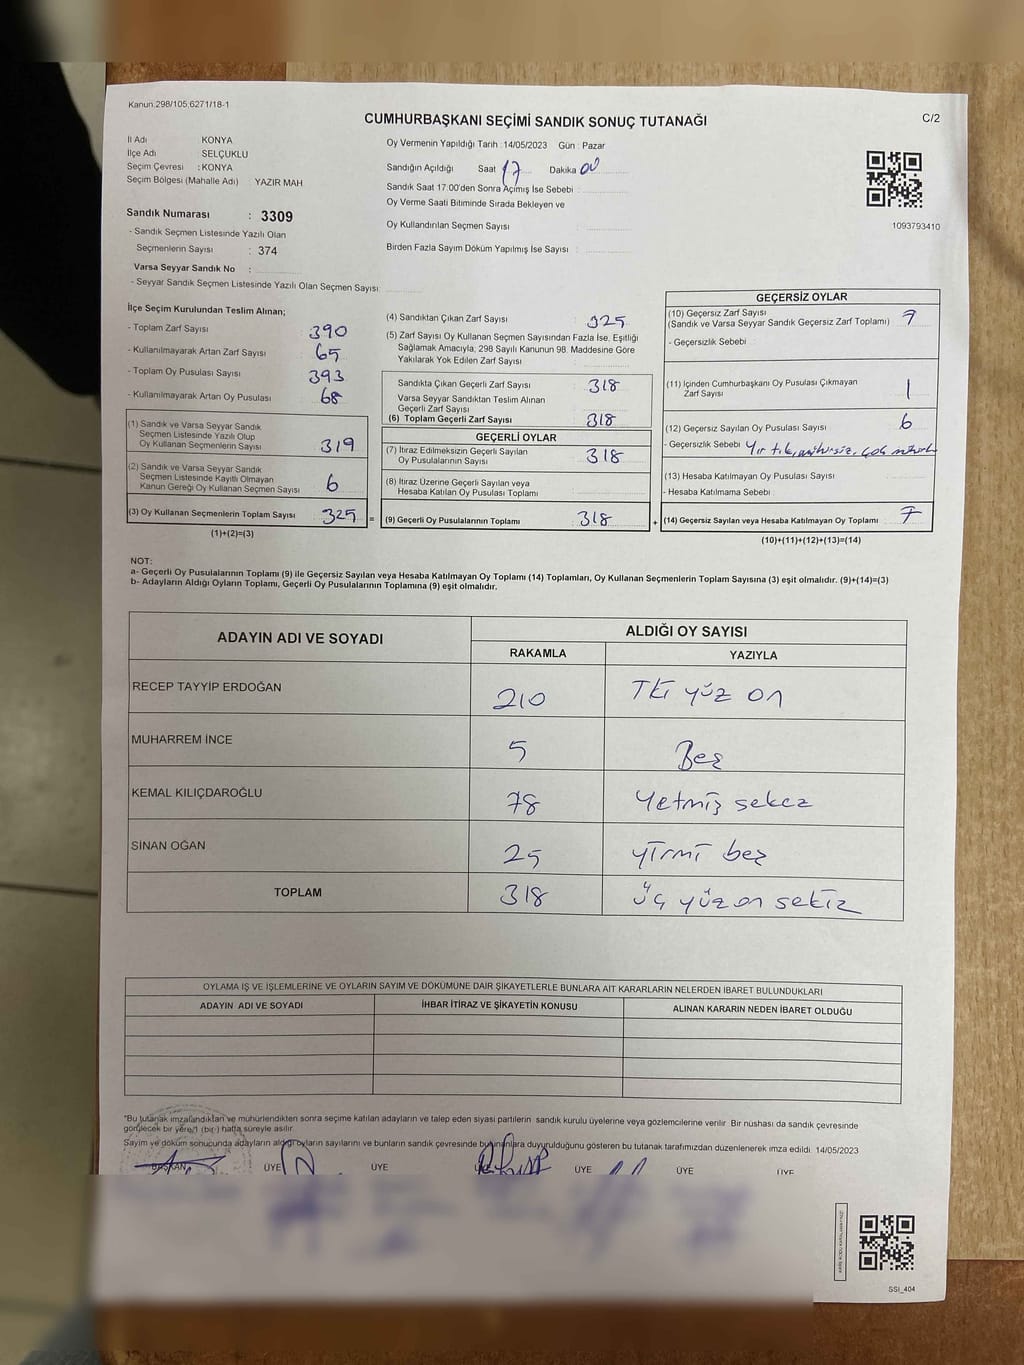 Kanun.298/105,6271/18-1
CUMHURBAŞKANI SEÇİMİ SANDIK SONUÇ TUTANAĞI
C/2
İl Adı KONYA
İlçe Adı SELÇUKLU
Seçim Çevresi : KONYA
Seçim Bölgesi (Mahalle Adı) : YAZIR MAH
Oy Vermenin Yapıldığı Tarih : 14/05/2023 Gün : Pazar
Sandığın Açıldığı Saat 17 Dakika 00
Sandık Saat 17:00'den Sonra Açılmış İse Sebebi :
Oy Verme Saati Bitiminde Sırada Bekleyen ve
Oy Kullandırılan Seçmen Sayısı :
Birden Fazla Sayım Döküm Yapılmış İse Sayısı :
1093793410
Sandık Numarası : 3309
- Sandık Seçmen Listesinde Yazılı Olan
Seçmenlerin Sayısı : 374
Varsa Seyyar Sandık No :
- Seyyar Sandık Seçmen Listesinde Yazılı Olan Seçmen Sayısı:
İlçe Seçim Kurulundan Teslim Alınan;
- Toplam Zarf Sayısı 390
- Kullanılmayarak Artan Zarf Sayısı 65
- Toplam Oy Pusulası Sayısı 393
- Kullanılmayarak Artan Oy Pusulası 68
(1) Sandık ve Varsa Seyyar Sandık
Seçmen Listesinde Yazılı Olup
Oy Kullanan Seçmenlerin Sayısı 319
(2) Sandık ve Varsa Seyyar Sandık
Seçmen Listesinde Kayıtlı Olmayan
Kanun Gereği Oy Kullanan Seçmen Sayısı 6
(3) Oy Kullanan Seçmenlerin Toplam Sayısı 325 =
(1)+(2)=(3)
(4) Sandıktan Çıkan Zarf Sayısı : 325
(5) Zarf Sayısı Oy Kullanan Seçmen Sayısından Fazla İse, Eşitliği
Sağlamak Amacıyla, 298 Sayılı Kanunun 98. Maddesine Göre
Yakılarak Yok Edilen Zarf Sayısı :
Sandıkta Çıkan Geçerli Zarf Sayısı : 318
Varsa Seyyar Sandıktan Teslim Alınan
Geçerli Zarf Sayısı :
(6) Toplam Geçerli Zarf Sayısı : 318
GEÇERLİ OYLAR
(7) İtiraz Edilmeksizin Geçerli Sayılan
Oy Pusulalarının Sayısı : 318
(8) İtiraz Üzerine Geçerli Sayılan veya
Hesaba Katılan Oy Pusulası Toplamı :
(9) Geçerli Oy Pusulalarının Toplamı : 318 +
GEÇERSİZ OYLAR
(10) Geçersiz Zarf Sayısı
(Sandık ve Varsa Seyyar Sandık Geçersiz Zarf Toplamı)
- Geçersizlik Sebebi
(11) İçinden Cumhurbaşkanı Oy Pusulası Çıkmayan
Zarf Sayısı 1
(12) Geçersiz Sayılan Oy Pusulası Sayısı 6
- Geçersizlik Sebebi
(13) Hesaba Katılmayan Oy Pusulası Sayısı
- Hesaba Katılmama Sebebi
(14) Geçersiz Sayılan veya Hesaba Katılmayan Oy Toplamı 7
(10)+(11)+(12)+(13)=(14)
NOT:
a- Geçerli Oy Pusulasının Toplamı (9) ile Geçersiz Sayılan veya Hesaba Katılmayan Oy Toplamı (14) Toplamları, Oy Kullanan Seçmenlerin Toplam Sayısına (3) eşit olmalıdır. (9)+(14)=(3)
b- Adayların Aldığı Oyların Toplamı, Geçerli Oy Pusulalarının Toplamına (9) eşit olmalıdır.
ADAYIN ADI VE SOYADI ALDIĞI OY SAYISI
RAKAMLA YAZIYLA
RECEP TAYYİP ERDOĞAN 210 İki yüz on
MUHARREM İNCE 5 Beş
KEMAL KILIÇDAROĞLU 78 Yetmiş sekez
SİNAN OĞAN 25 yirmi beş
TOPLAM 318 üç yüz on sekiz
OYLAMA İŞ VE İŞLEMLERİNE VE OYLARIN SAYIM VE DÖKÜMÜNE DAİR ŞİKAYETLERLE BUNLARA AİT KARARLARIN NELERDEN İBARET BULUNDUKLARI
ADAYIN ADI VE SOYADI İHBAR İTİRAZ VE ŞİKAYETİN KONUSU ALINAN KARARIN NEDEN İBARET OLDUĞU
*Bu tutanak imzalandıktan ve mühürlendikten sonra seçime katılan adayların ve talep eden siyasi partilerin sandık kurulu üyelerine veya gözlemcilerine verilir. Bir nüshası da sandık çevresinde
görülecek bir yere/1 (bir-) hafta süreyle asılır.
Sayım ve döküm sonucunda adayların aldığı oyların sayılarını ve bunların sandık çevresinde bulunanlara duyurulduğunu gösteren bu tutanak tarafımızdan düzenlenerek imza edildi. 14/05/2023
BAŞKAN ÜYE ÜYE ÜYE ÜYE ÜYE
SSI_404